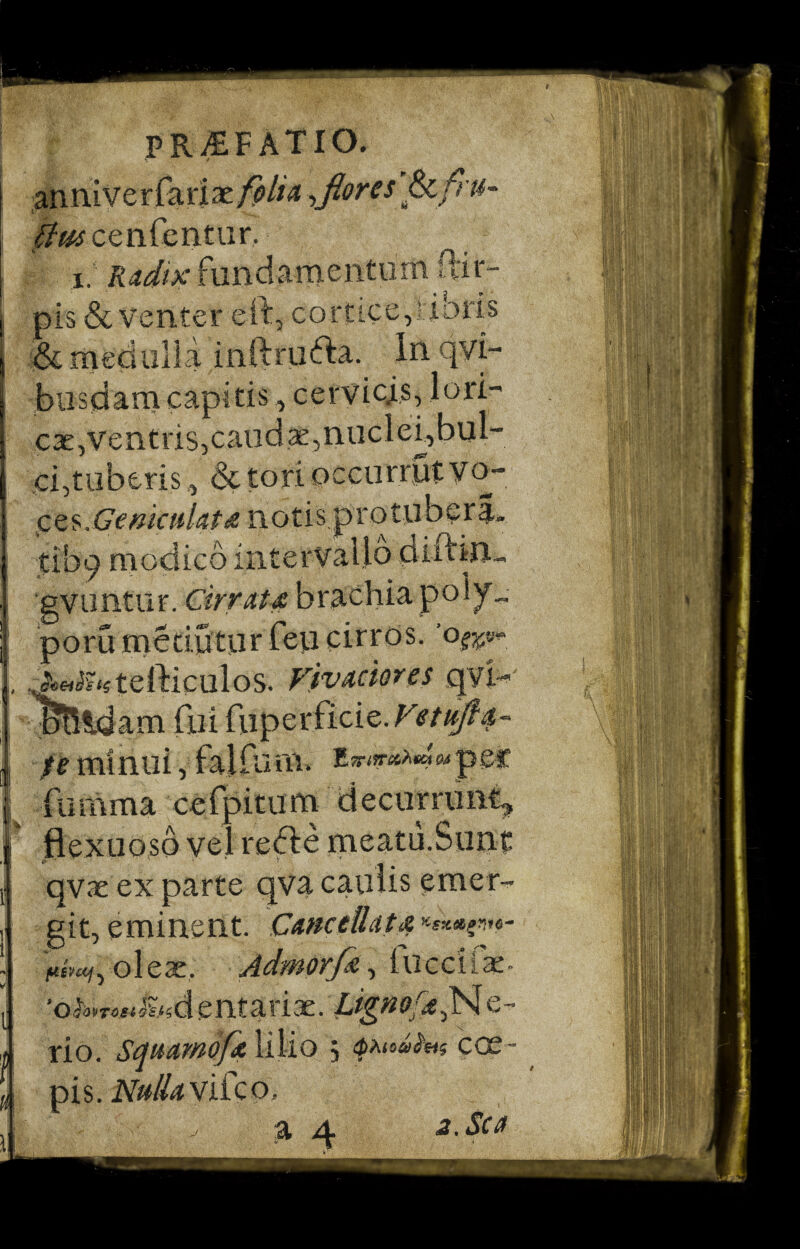 PRÆFATIO.
anniverſariæ folia, flores & fru-
ctus cenſentur.
1. Radix fundamentum ſtir-
pis & venter eſt, cortice, fibris
& medullâ inſtructa. In qvi-
busdam capitis, cervicis, lori-
cæ, ventris, caudæ, nuclei, bul-
ci, tuberis, & tori occurrût vo-
ces. Geniculatæ notis protuberā-
tibꝰ modicô intervallô diſtin-
gvuntur. Cirratæ brachia poly-
porū metiûtur ſeu cirros.
teſticulos. Vivaciores qvi-
busdam ſui ſuperficie. Vetuſta-
te minui, falſum. per
ſumma ceſpitum decurrunt,
flexuosô vel rectè meatu. Sunt
qvæ ex parte qva caulis emer-
git, eminent. Cancellatæ
oleæ. Admorſæ, ſucciſæ.
dentariæ. Lignoſæ, Ne-
rio. Squamoſæ lilio ; cœ-
pis. Nulla viſco.
a 4 2. Sca